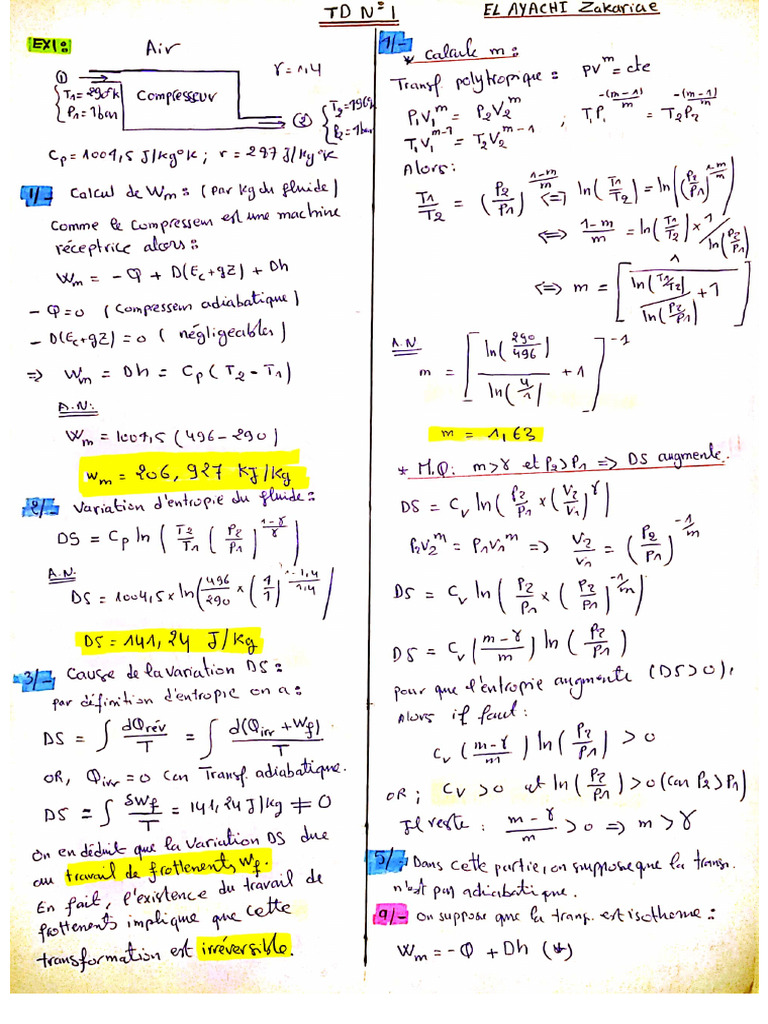 TD N°1
EL AYACHI Zakariae
EX1:
Air
r = 1,4
①
T1 = 290°k
P1 = 1bar
Compresseur
②
T2 = 196°k
P2 = 1bar
Cp = 1004,5 J/kg°K ; r = 287 J/kg°K
1/- Calcul de Wm : (par kg du fluide)
Comme le compresseur est une machine
réceptrice alors :
Wm = -Q + D(Ec+gZ) + Dh
- Q = 0 (Compresseur adiabatique)
- D(Ec+gZ) = 0 (négligeables)
=> Wm = Dh = Cp (T2 - T1)
A.N:
Wm = 1004,5 (496 - 290)
Wm = 206,927 KJ/Kg
2/- Variation d'entropie du fluide :
DS = Cp ln (T2/T1 (P2/P1)^(1-γ/γ))
A.N:
DS = 1004,5 x ln(496/290 x (1/1)^(1-1,4/1,4))
DS = 141,24 J/Kg
3/- Cause de la variation DS :
par définition d'entropie on a :
DS = ∫ dQrév/T = ∫ d(Qirr + Wf)/T
OR, Qirr = 0 Can Transf. adiabatique.
DS = ∫ δWf/T = 141,24 J/kg ≠ 0
On en déduit que la variation DS due
au travail de frottements Wf.
En fait, l'existence du travail de
frottements implique que cette
transformation est irréversible.
4/-
* Calcule m :
Transf. polytropique : PV^m = cte
P1V1^m = P2V2^m
T1V1^(m-1) = T2V2^(m-1) ; T1P1^(-(m-1)/m) = T2P2^(-(m-1)/m)
Alors :
T1/T2 = (P2/P1)^(1-m/m) <=> ln(T1/T2) = ln((P2/P1)^(1-m/m))
<=> 1-m/m = ln(T1/T2) x 1/ln(P2/P1)
<=> m = [1/(ln(T1/T2)/ln(P2/P1) + 1)]
A.N
m = [ln(290/496)/ln(4/1) + 1]^-1
m = 1,63
* M.Q: m>γ et P2>P1 => DS augmente.
DS = Cv ln(P2/P1 x (V2/V1)^γ)
P2V2^m = P1V1^m => V2/V1 = (P2/P1)^(-1/m)
DS = Cv ln(P2/P1 x (P2/P1)^(-γ/m))
DS = Cv (m-γ/m) ln(P2/P1)
pour que l'entropie augmente (DS>0),
Alors il faut :
Cv (m-γ/m) ln(P2/P1) > 0
OR ; Cv > 0 et ln(P2/P1) > 0 (Can P2>P1)
Il reste : m-γ/m > 0 => m > γ
5/- Dans cette partie, on suppose que la transn.
n'est pas adiabatique.
a/- On suppose que la transf. est isotheme :
Wm = -Q + Dh (*)